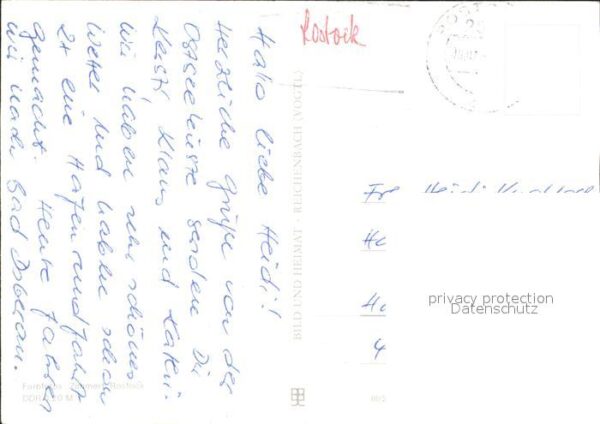 Hallo liebe Heidi!
Herzliche Grüße von der
Ostseeküste senden Dir
Klaus und
Wir haben sehr schönes
Wetter und haben schon
2x eine Hafenrundfahrt
gemacht. Heute fahren
wir nach Bad Doberan.
Rostock
BILD UND HEIMAT · REICHENBACH (VOGTL)
Heidi
privacy protection
Datenschutz
Rostock
DDR M